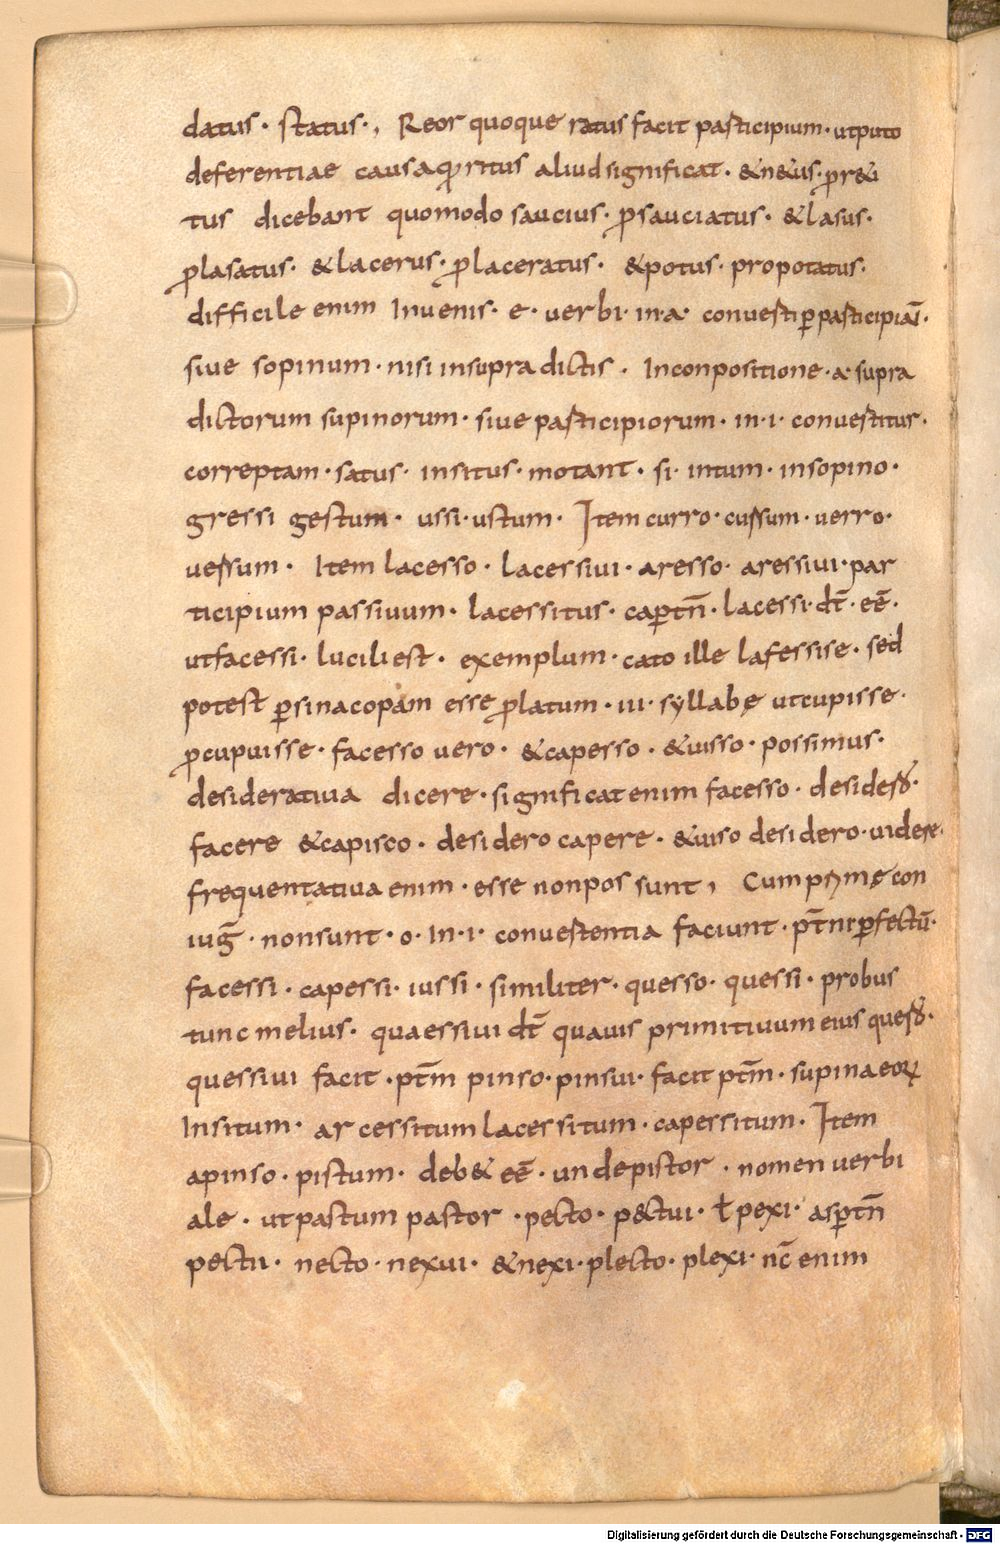 datus · status ·, Reor quoque ratus facit participium · utputo
deferentiae causa ritus aliud significat · &n&us · pr&i
tus dicebant quomodo saucius · ꝓsauciatus · &lasus ·
ꝓlasatus · &lacerus · ꝓlaceratus · &potus · propotatus ·
difficile enim Invenis · e · uerbi · in · a · converti ꝑparticipiaĩ ·
siue sopinum · nisi insupra dictis · Inconpositione · a · supra
dictorum supinorum · siue participiorum · in · i · convertitur ·
correptam · satus · insitus · motant · si · intum · insopino ·
gressi gestum · ussi · ustum · Item curro · cursum · uerro ·
uersum · Item lacesso · lacessiui · aresso · aressiui · par
ticipium passiuum · lacessitus · caꝑtñ · lacessi · dt̃ · eẽ ·
utfacessi · lucili est · exemplum · cato ille lafessise · sed
potest ꝑsinacopam esse ꝓlatum · iii · syllabę utcupisse ·
ꝓcupuisse · facesso uero · &capesso · &uisso · possimus ·
desideratiua dicere · significat enim facesso ·
facere &capisco · desidero capere · &uiso desidero · uidere ·
frequentatiua enim · esse nonpos sunt, Cum con
iug̃ · nonsunt · o · in · i · convertentia faciunt · pt̃nr ꝑfectũ ·
facessi · capessi · iussi · similiter · quesso · quessi · probus
tunc melius · quaessiui dt̃ quauis primitiuum eius
quessiui facit · pt̃m pinso · pinsui · facit pt̃m · supina eoꝝ
Insitum · arcessitum lacessitum · capessitum · Item
apinso · pistum · deb& eẽ · unde pistor · nomen uerbi
ale · ut pastum pastor · pecto · p&tui · ł pexi · asꝑtñ
pectii · necto · nexui · &nexi · plecto · plexi · nc̃ enim
Digitalisierung gefördert durch die Deutsche Forschungsgemeinschaft - DFG